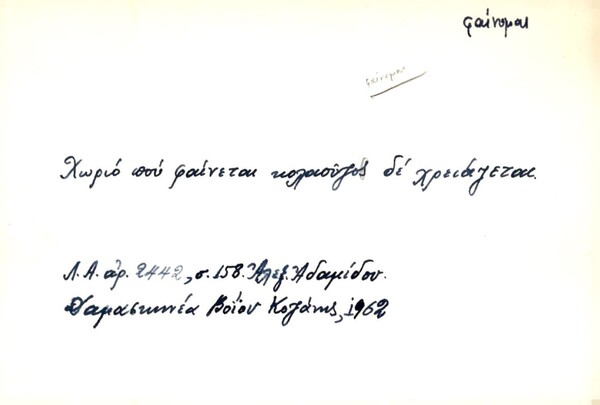 φαίνομαι
φαίνομαι
Χωριό πού φαίνεται κολαοῦζος δέ χρειάζεται.
Λ.Α. ἀρ. 2442, σ. 158. Ἀλεξ. Ἀδαμίδου.
Δαμασκηνέα Βοΐου Κοζάνης, 1962